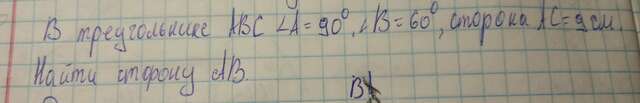 В треугольнике ABC ∠A=90°, ∠B=60°, сторона AC=9см.
Найти сторону AB
B